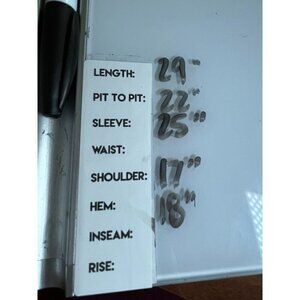 LENGTH: 29"
PIT TO PIT: 22"
SLEEVE: 25"
WAIST:
SHOULDER: 17"
HEM: 18"
INSEAM:
RISE: